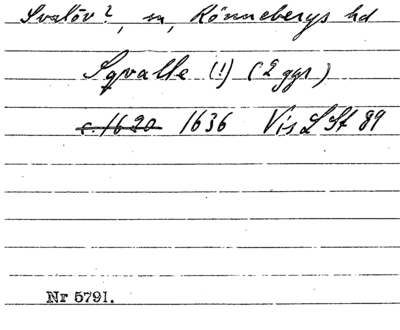 Svalöv?, sn, Rönnebergs hd
Sqvalle (!) (2 ggr)
c. 1620 1636 Vis L St 89
Nr 5791.